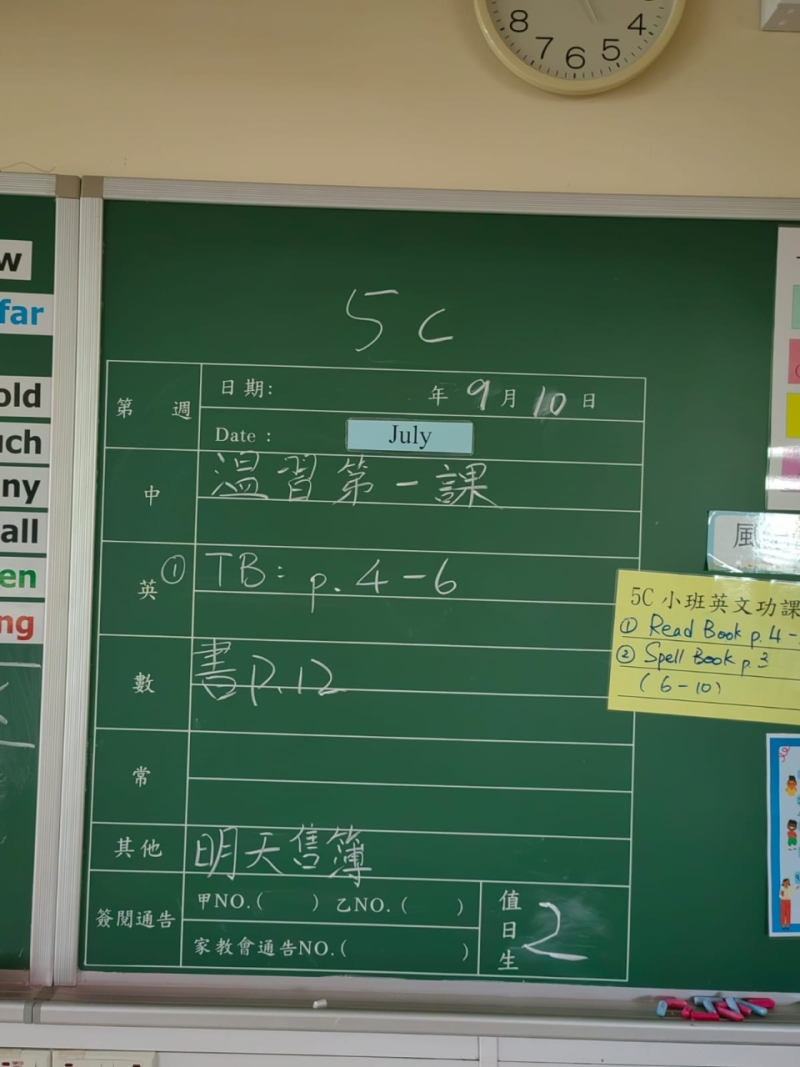 8 7 6 5 4
w
far
old
uch
ny
all
en
ng
5C
第 週
日期: 年 9 月 10 日
Date : July
中 溫習第一課
英 ① TB: p. 4-6
數 書P.12
常
其他 明天售簿
簽閱通告 甲NO.( ) 乙NO.( )
家教會通告NO.( )
值日生 2
風
5C 小班英文功課
① Read Book p. 4-
② Spell Book p. 3
(6-10)